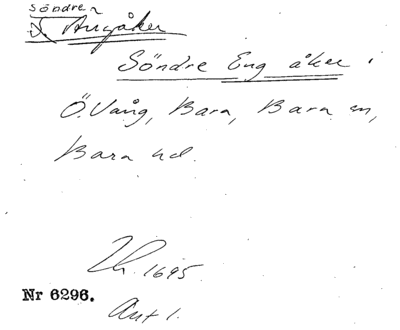 Söndre
S. Angåker
Söndre Eng åker i
Ö. Vång, Bara, Bara sn,
Bara hd.
Lh. 1695.
Nr 6296.
Akt 1.